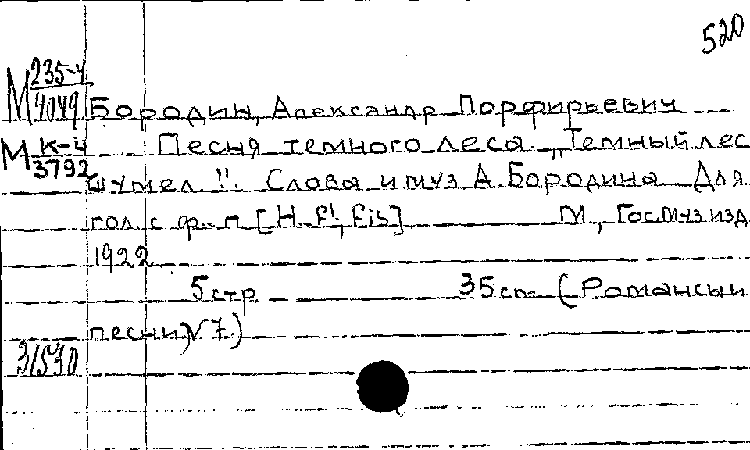 520
М 235-4/4049 Бородин, Александр Порфирьевич
М К-4/3792 Песня темного леса. „Темный лес
шумел". Слова и муз А. Бородина Для
гол. с ф-п [H-f¹, fis] М, Гос Муз изд
1922
5 стр 35 см (Романсы и
песни) № 7)
31540